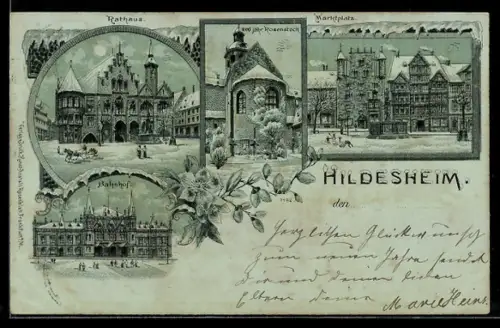 Rathaus.
1000 jähr. Rosenstock
Marktplatz.
Bahnhof.
HILDESHEIM.
den
Herzlichen Glückwunsch
zum neuen Jahre sendet
Dir und deinen lieben
Eltern deine
Marie Heins.